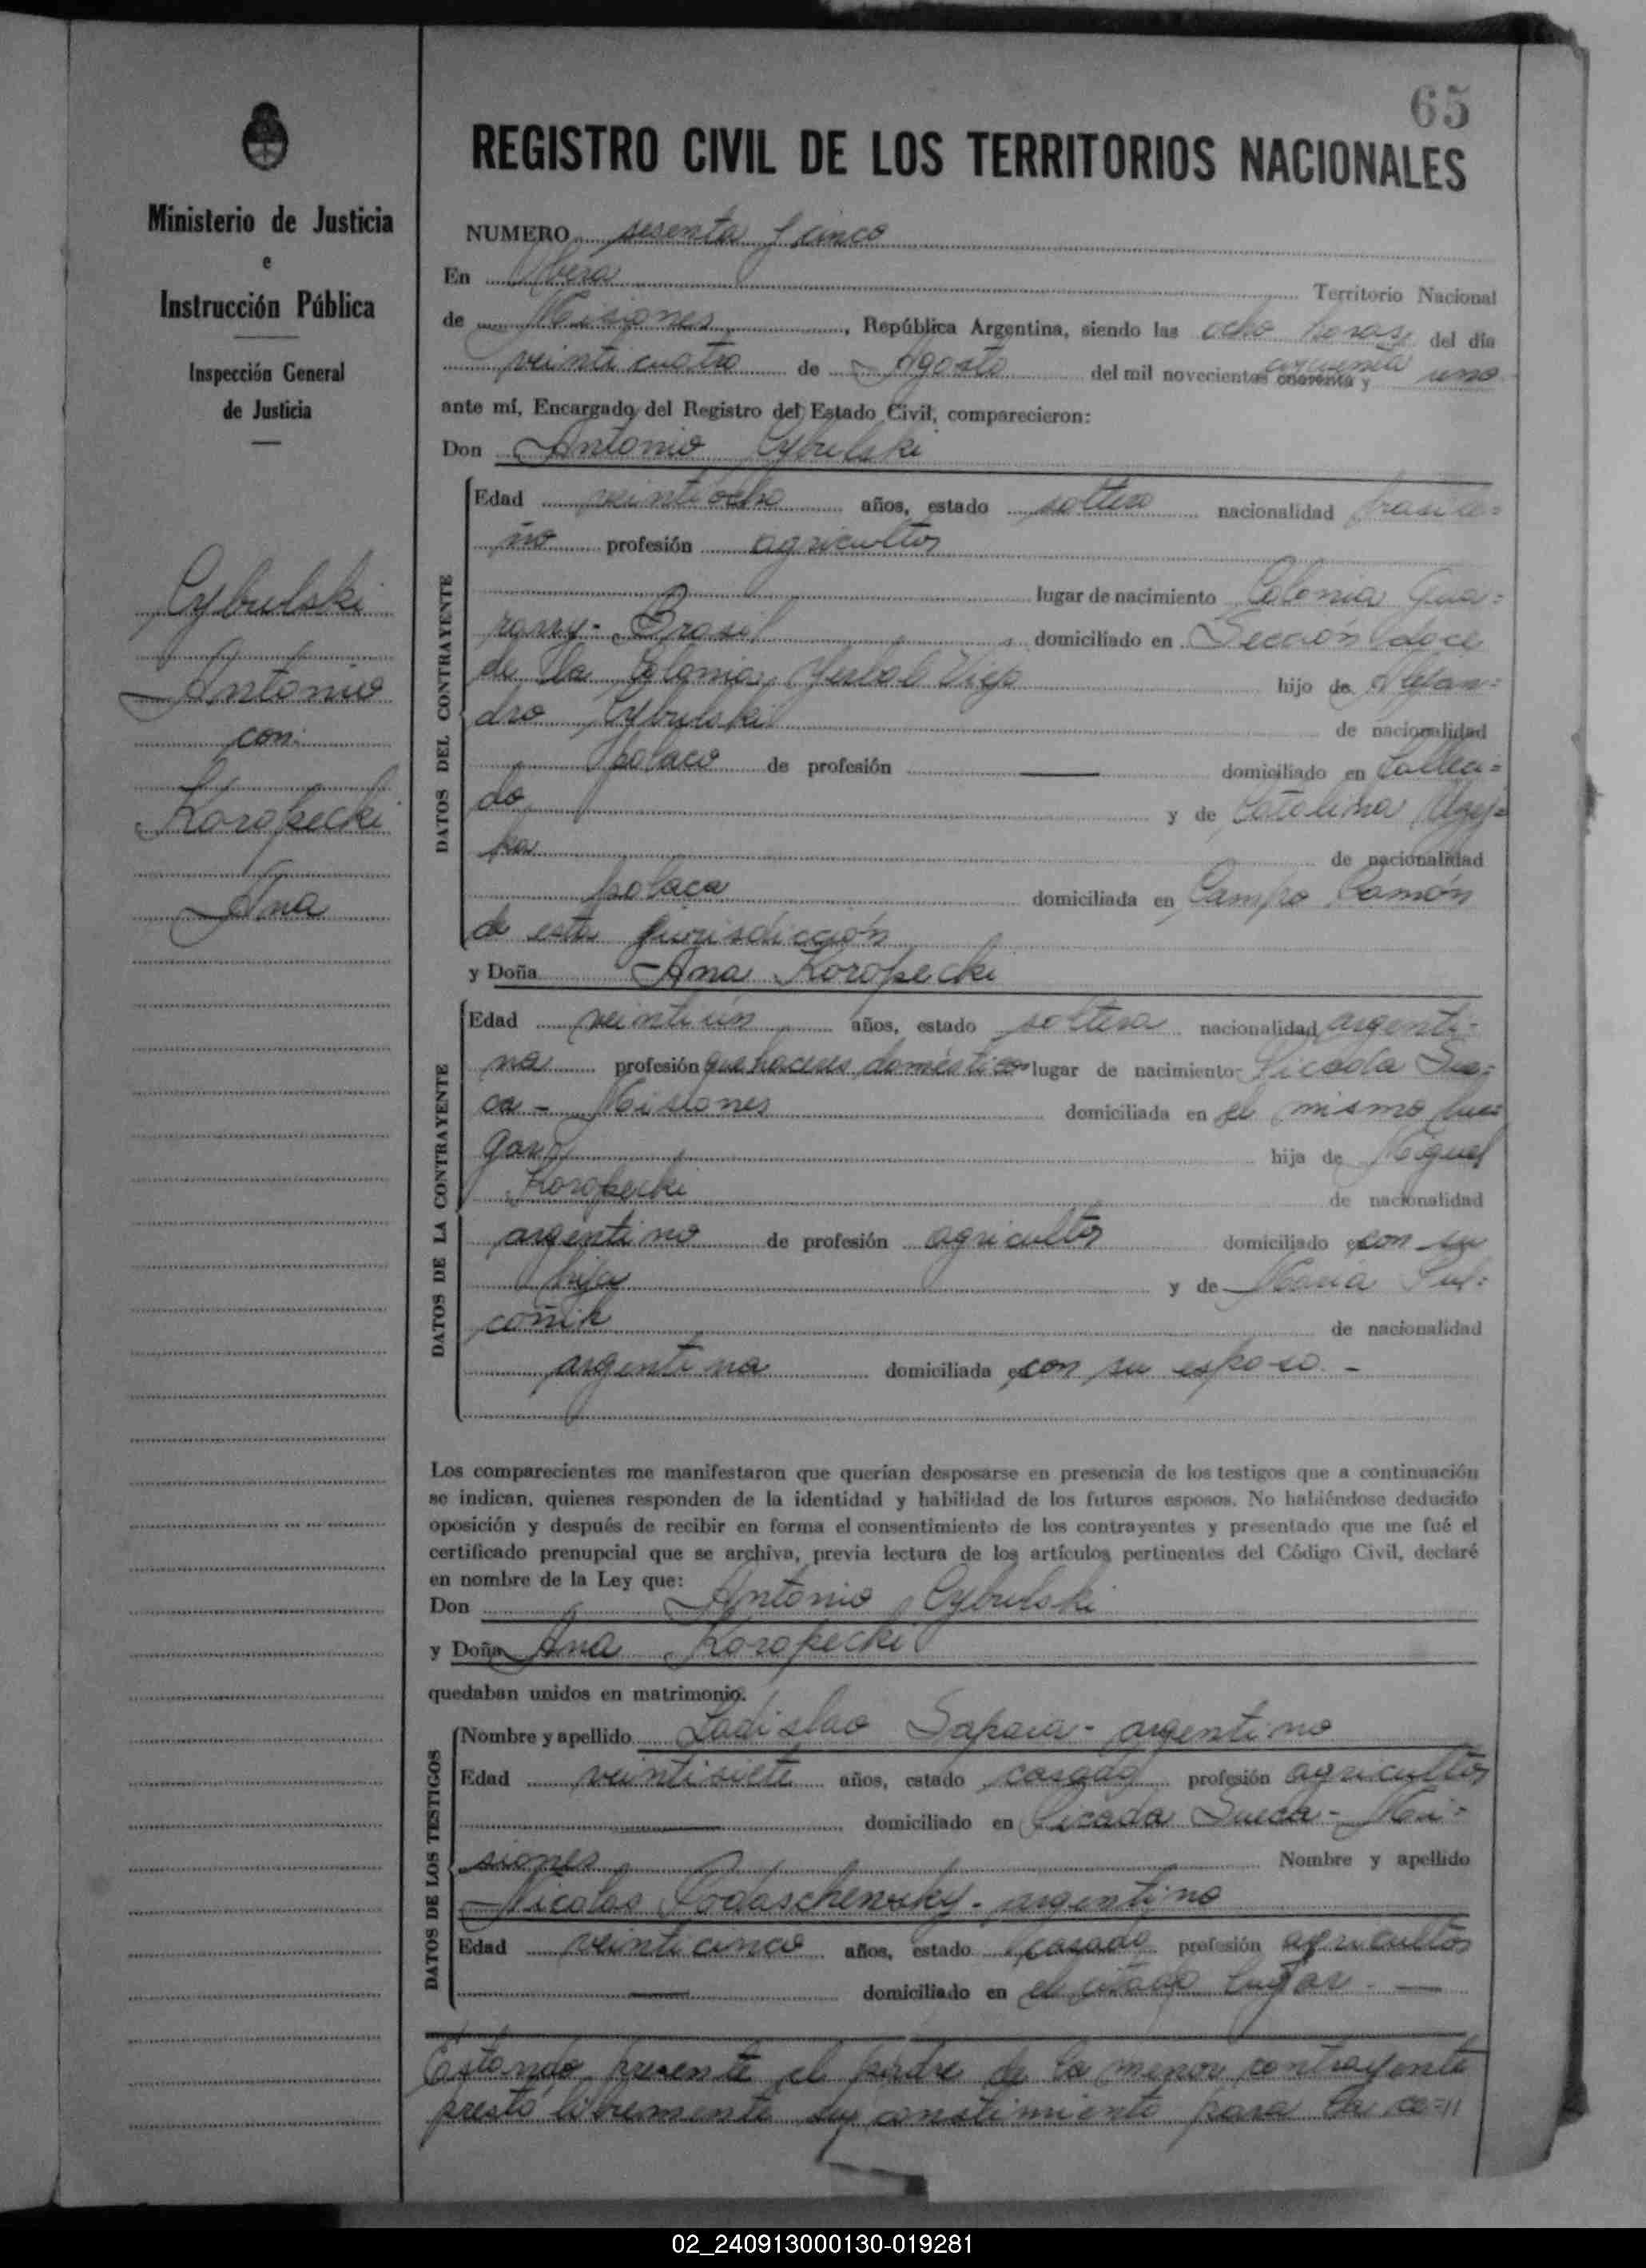 65
REGISTRO CIVIL DE LOS TERRITORIOS NACIONALES
Ministerio de Justicia
e
Instrucción Pública
Inspección General
de Justicia
Cybulski
Antonio
con
Koropecki
Ana
NUMERO sesenta y cinco
En Oberá Territorio Nacional
de Misiones, República Argentina, siendo las ocho horas del día
veinticuatro de Agosto del mil novecientos cuarenta y cincuenta uno
ante mí, Encargado del Registro del Estado Civil, comparecieron:
Don Antonio Cybulski
DATOS DEL CONTRAYENTE
Edad veintiocho años, estado soltero nacionalidad brasile=
ño profesión agricultor
lugar de nacimiento Colonia Gua=
rany - Brasil domiciliado en Sección doce
de la Colonia Yerbal Viejo hijo de Alejan=
dro Cybulski de nacionalidad
polaco de profesión — domiciliado en falleci=
do y de Catalina
ka de nacionalidad
polaca domiciliada en Campo Ramón
de esta jurisdicción
y Doña Ana Koropecki
DATOS DE LA CONTRAYENTE
Edad veintiún años, estado soltera nacionalidad argenti-
na profesión quehaceres domésticos lugar de nacimiento Picada Sue=
ca - Misiones domiciliada en el mismo lu=
gar hija de Miguel
Koropecki de nacionalidad
argentino de profesión agricultor domiciliado con su
hija y de María
de nacionalidad
argentina domiciliada con su esposo. -
Los comparecientes me manifestaron que querían desposarse en presencia de los testigos que a continuación
se indican, quienes responden de la identidad y habilidad de los futuros esposos. No habiéndose deducido
oposición y después de recibir en forma el consentimiento de los contrayentes y presentado que me fué el
certificado prenupcial que se archiva, previa lectura de los artículos pertinentes del Código Civil, declaré
en nombre de la Ley que:
Don Antonio Cybulski
y Doña Ana Koropecki
quedaban unidos en matrimonio.
DATOS DE LOS TESTIGOS
Nombre y apellido Ladislao - argentino
Edad veintisiete años, estado casado profesión agricultor
domiciliado en Picada Sueca - Mi-
siones Nombre y apellido
Nicolas - argentino
Edad veinticinco años, estado casado profesión agricultor
domiciliado en el citado lugar. —
Estando presente el padre de la menor contrayente
prestó libremente su para la ce=//
02_240913000130-019281